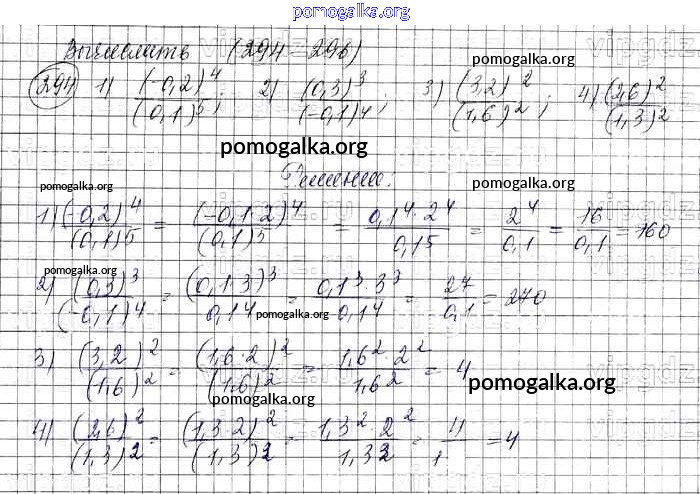 pomogalka.org
Вычислить (294-296)
pomogalka.org
294 1) (-0,2)^4/(0,1)^5; 2) (0,3)^3/(-0,1)^4; 3) (3,2)^2/(1,6)^2; 4) (2,6)^2/(1,3)^2
pomogalka.org
Решение.
pomogalka.org pomogalka.org
1) (-0,2)^4/(0,1)^5 = (-0,1·2)^4/(0,1)^5 = 0,1^4·2^4/0,1^5 = 2^4/0,1 = 16/0,1 = 160
pomogalka.org
2) (0,3)^3/(-0,1)^4 = (0,1·3)^3/0,1^4 = 0,1^3·3^3/0,1^4 = 27/0,1 = 270
pomogalka.org
3) (3,2)^2/(1,6)^2 = (1,6·2)^2/(1,6)^2 = 1,6^2·2^2/1,6^2 = 4
pomogalka.org
4) (2,6)^2/(1,3)^2 = (1,3·2)^2/(1,3)^2 = 1,3^2·2^2/1,3^2 = 4/1 = 4